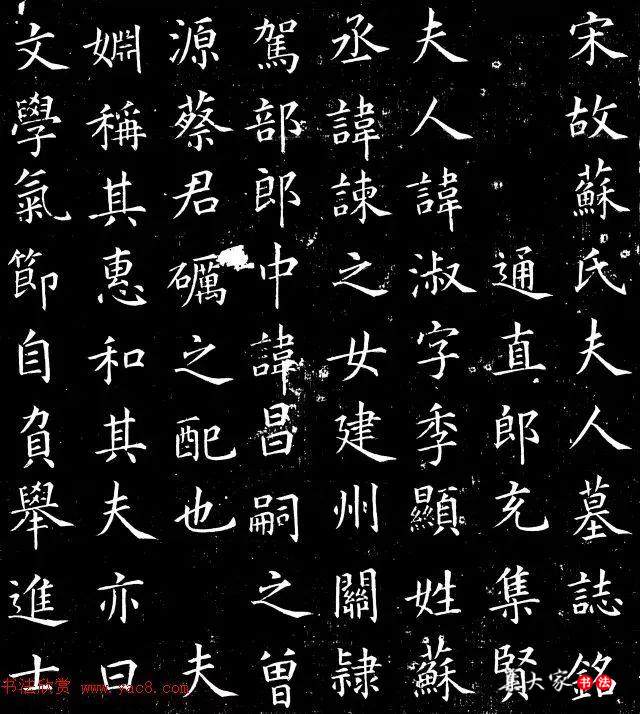 宋故蘇氏夫人墓誌銘
通直郎充集賢
夫人諱淑字季顯姓蘇
丞諱諫之女建州關隷
駕部郎中諱昌嗣之曾
源蔡君礪之配也 夫
婣稱其惠和其夫亦曰
文學氣節自負舉進士
书法欣赏 www.yac8.com
大家书法